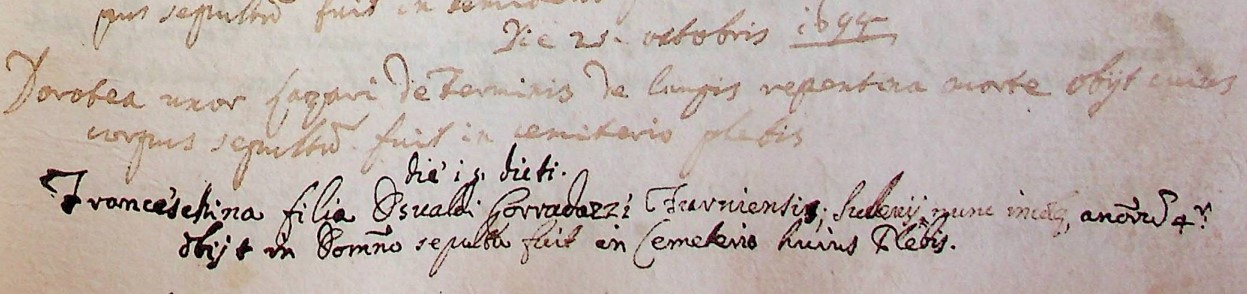 pus sepultũ fuit in
Die 21. octobris 1699
Dorotea uxor de Terminis de Lungis repentina morte obijt cuius
corpus sepultũ fuit in cemiterio plebis
die 15. dicti.
Franceschina filia Osualdi Corradazzi Furniensis, nunc
obijt in Domno sepulta fuit in Cemeterio huius Plebis.